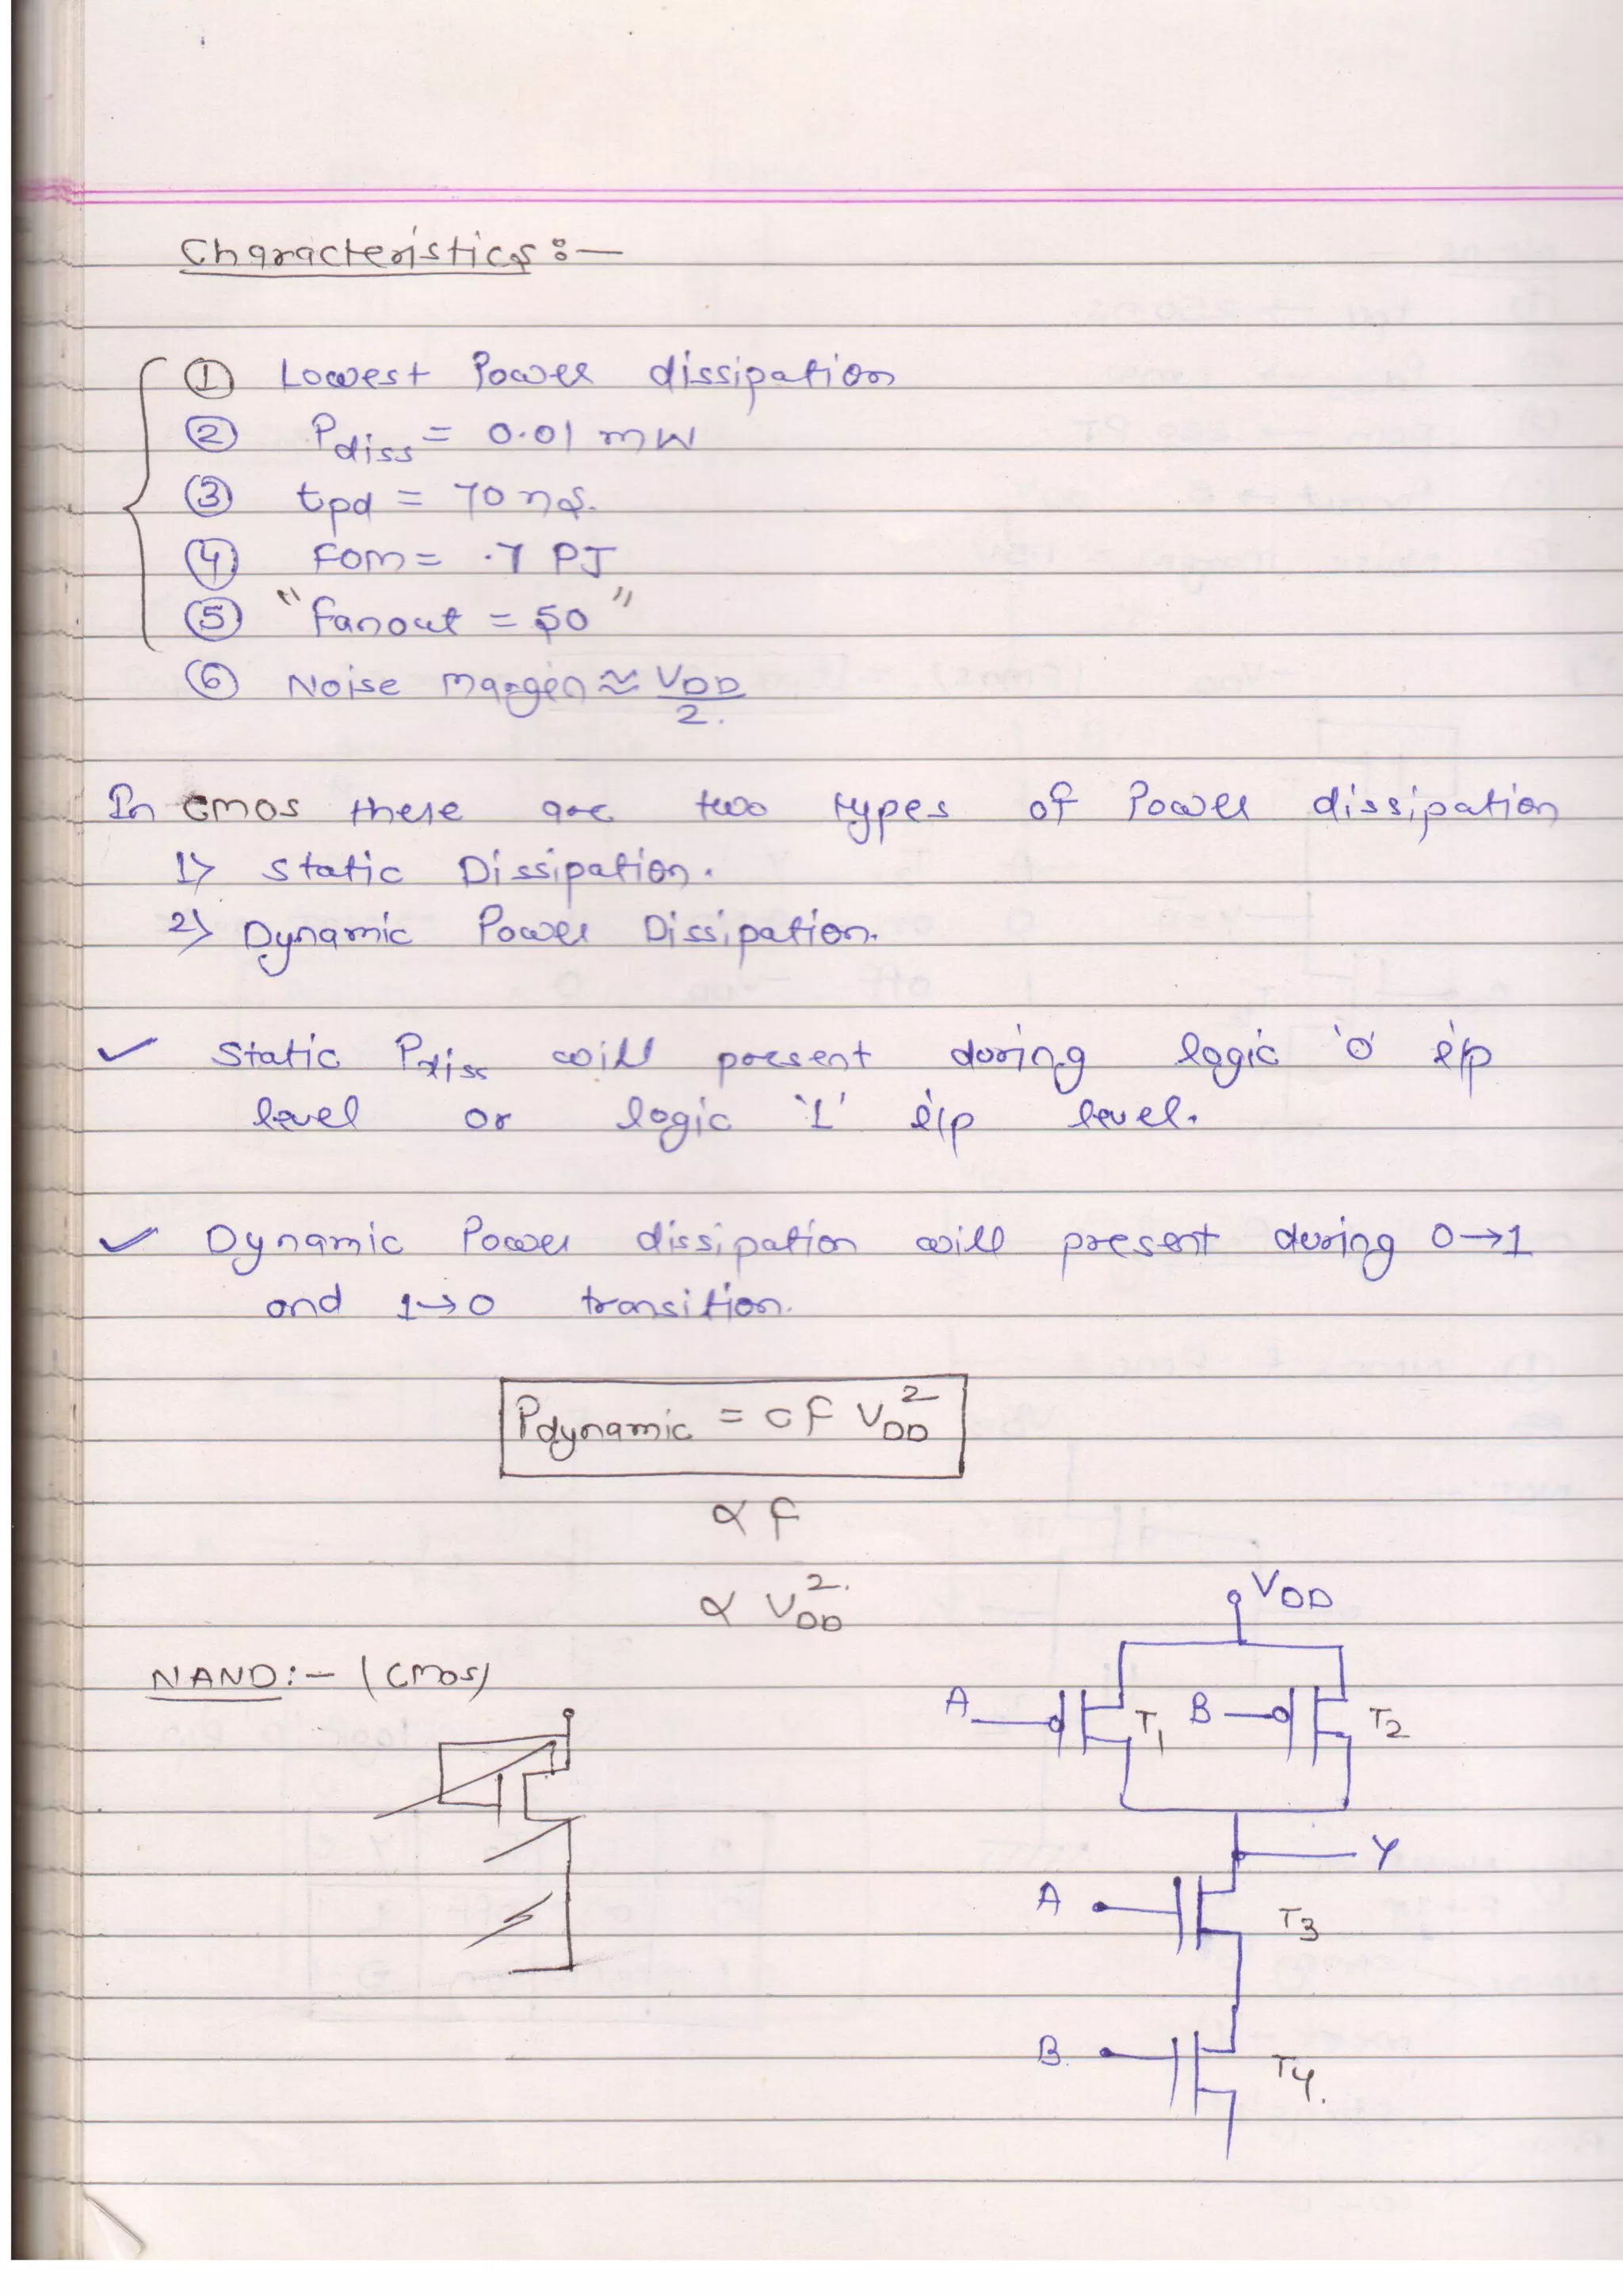 Characteristics :—
① Lowest Power dissipation
② Pdiss = 0.01 mW
③ tpd = 70 ns.
④ FOM = .7 PJ
⑤ "fanout = 50"
⑥ Noise margin ≈ VDD/2.
In CMOS there are two types of Power dissipation
1> Static Dissipation.
2> Dynamic Power Dissipation.
✓ Static Pdiss will present during logic '0' i/p
level or logic '1' i/p level.
✓ Dynamic Power dissipation will present during 0→1
and 1→0 transition.
Pdynamic = CF VDD²
∝ F
∝ VDD².
VDD
NAND :— (CMOS)
A T1 B T2
Y
A T3
B. T4.